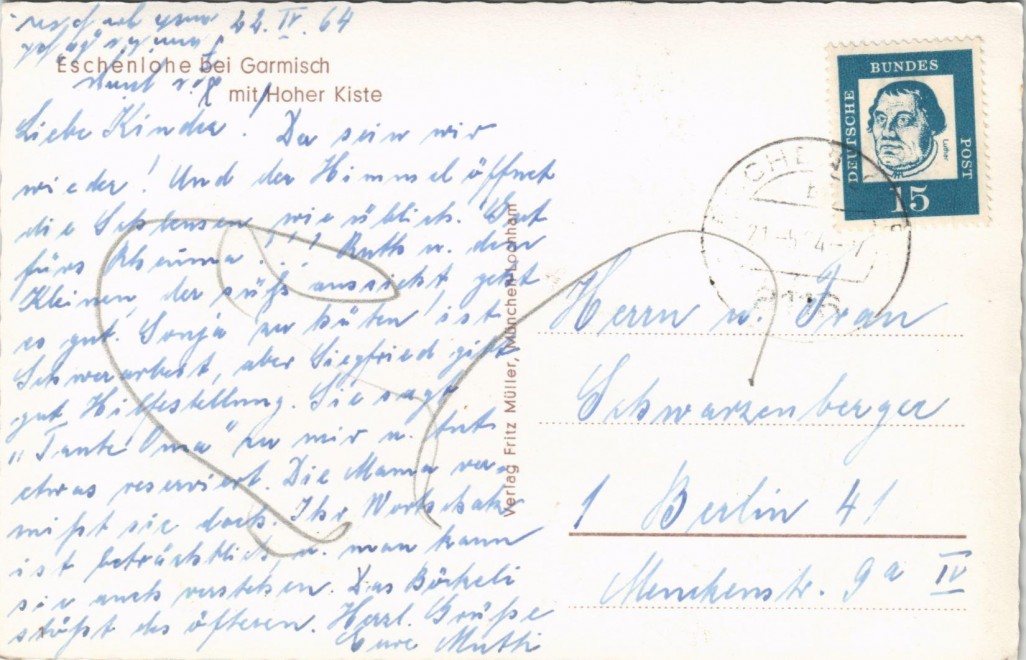 22. IV. 64
Eschenlohe bei Garmisch
mit Hoher Kiste
Liebe Kinder! Da sein wir
wieder! Und der Himmel öffnet
die Schleusen, wie üblich. Gut
fürs Rheuma...! Ruth u. dem
Kleinen, der süß aussieht geht
es gut. Sonja zu hüten ist
Schwerarbeit, aber Siegfried gibt
gut Hilfestellung. Sie sagt
"Tante Oma" zu mir u. tut
etwas reserviert. Die Mama ver-
mißt sie doch. Ihr Wortschatz
ist beträchtlich u. man kann
sie auch verstehen. Das Böckeli
stößt des öfteren. Herzl. Grüße
Eure Mutti
Verlag Fritz Müller, München-Lochham
DEUTSCHE
BUNDES
POST
Luther
15
8116
Herrn u. Frau
Schwarzenberger
1 Berlin 41
Menckenstr. 9a IV